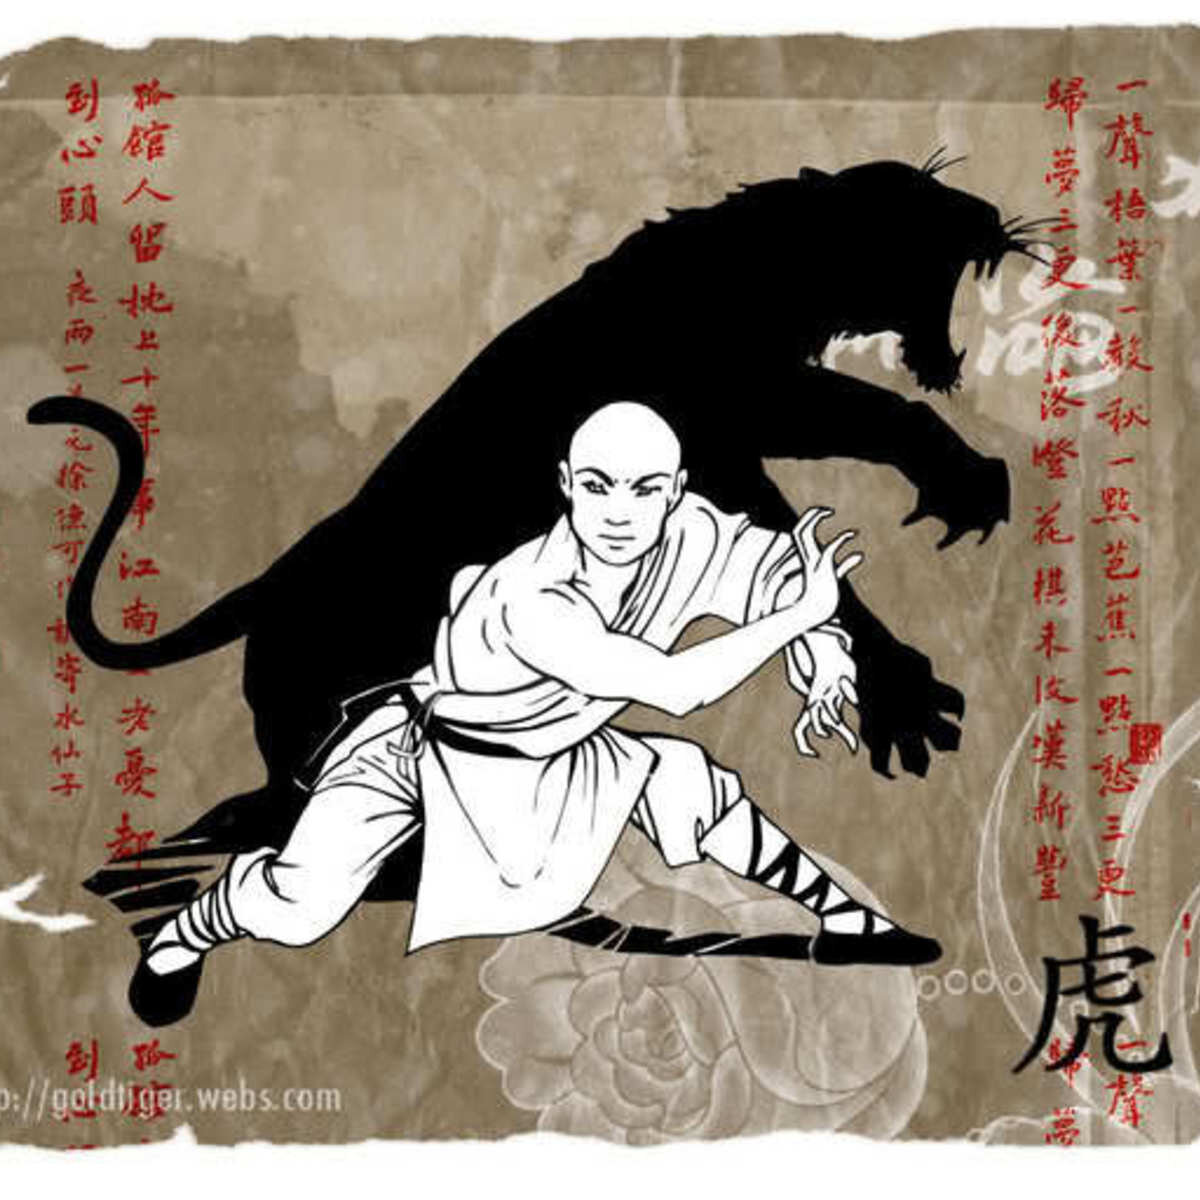 一聲梧葉一聲秋一點芭蕉一點愁三更
歸夢三更後落燈花棋未收嘆新豐
孤館人留枕上十年事江南二老憂都
到心頭 夜雨一首元徐德可作調寄水仙子
一聲
歸夢
虎
孤館
到心
p://goldtiger.webs.com